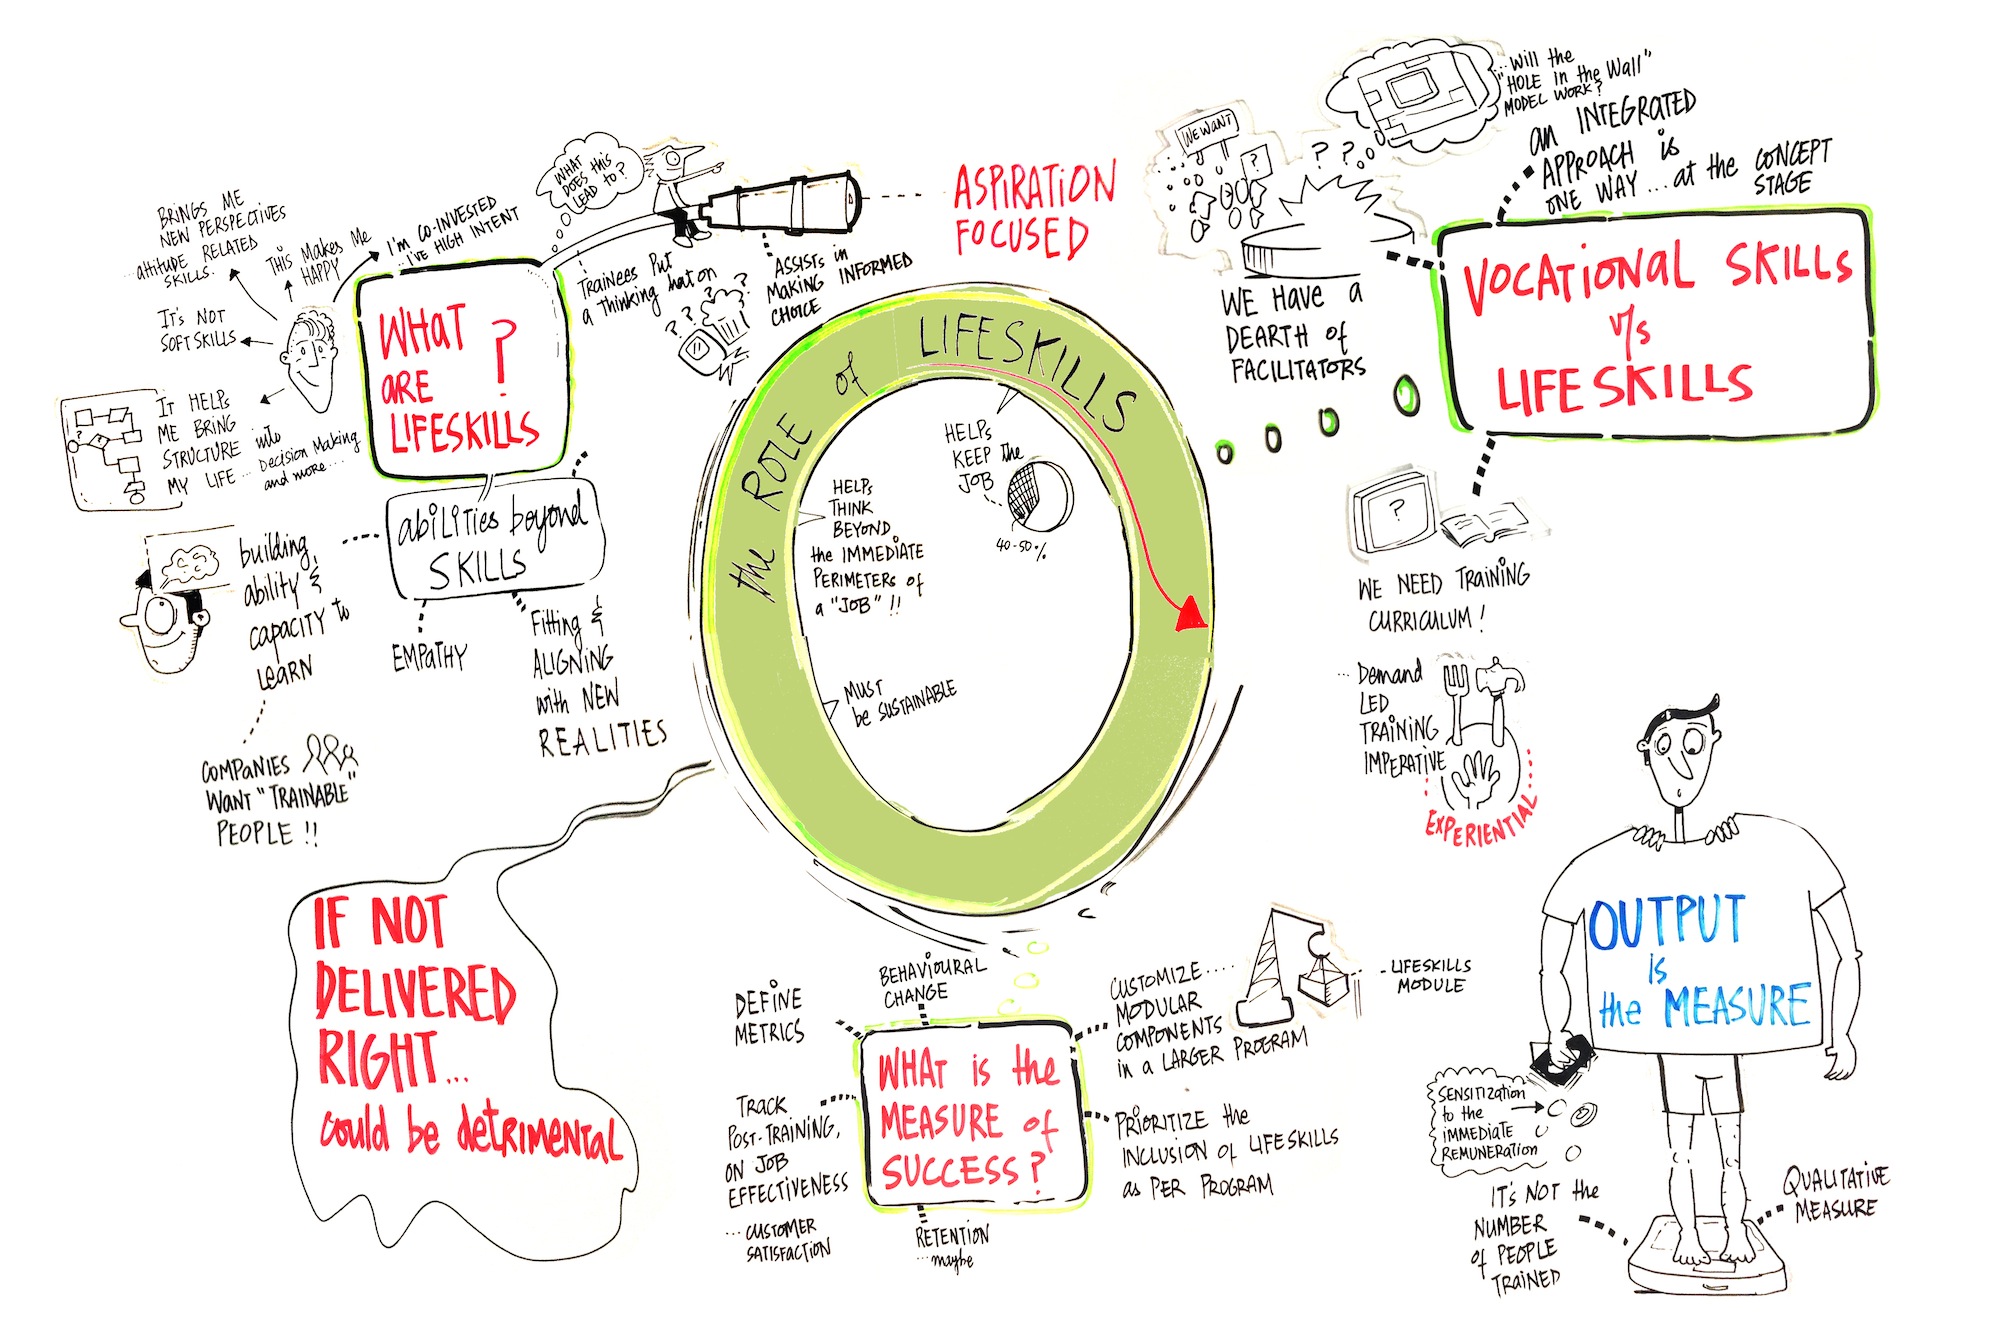 the ROLE of LIFESKILLS
HELPS
THINK
BEYOND
the IMMEDIATE
PERIMETERS of
a "JOB" !!
HELPS
KEEP the
JOB
40-50%
MUST
be SUSTAINABLE
WHAT
ARE
LIFESKILLS
?
BRINGS ME
NEW PERSPECTIVES
...attitude RELATED
SKILLS.
THIS MAKES ME
HAPPY
I'M CO-INVESTED
... I'VE HIGH INTENT
IT'S NOT
SOFTSKILLS
IT HELPS
ME BRING
STRUCTURE into
MY LIFE ... Decision Making
and more...
?
abilities beyond
SKILLS
building
ability &
capacity to
LEARN
COMPANIES
WANT "TRAINABLE"
PEOPLE !!
EMPATHY
Fitting &
ALIGNING
with NEW
REALITIES
WHAT
DOES this
LEAD to?
TRAINEES PUT
a thinking hat on
? ? ? ? ? ?
ASSISTS in
MAKING INFORMED
CHOICE
ASPIRATION
FOCUSED
WE WANT
?
? ?
...Will the
"HOLE in the Wall"
MODEL WORK?
an INTEGRATED
APPROACH is
ONE WAY ...at the CONCEPT
STAGE
WE HAVE a
DEARTH of
FACILITATORS
VOCATIONAL SKILLS
v/s
LIFESKILLS
?
WE NEED TRAINING
CURRICULUM!
... Demand
LED
TRAINING
IMPERATIVE
EXPERIENTIAL
IF NOT
DELIVERED
RIGHT...
could be detrimental
WHAT is the
MEASURE of
SUCCESS?
DEFINE
METRICS
BEHAVIOURAL
CHANGE
CUSTOMIZE
MODULAR
COMPONENTS
in a LARGER PROGRAM
- LIFESKILLS
MODULE
TRACK
POST-TRAINING,
ON JOB
EFFECTIVENESS
... CUSTOMER
SATISFACTION
RETENTION
...maybe
PRIORITIZE the
INCLUSION of LIFESKILLS
as PER PROGRAM
OUTPUT
is
the MEASURE
SENSITIZATION
to the
IMMEDIATE
REMUNERATION
IT'S NOT the
NUMBER
of PEOPLE
TRAINED
QUALITATIVE
MEASURE